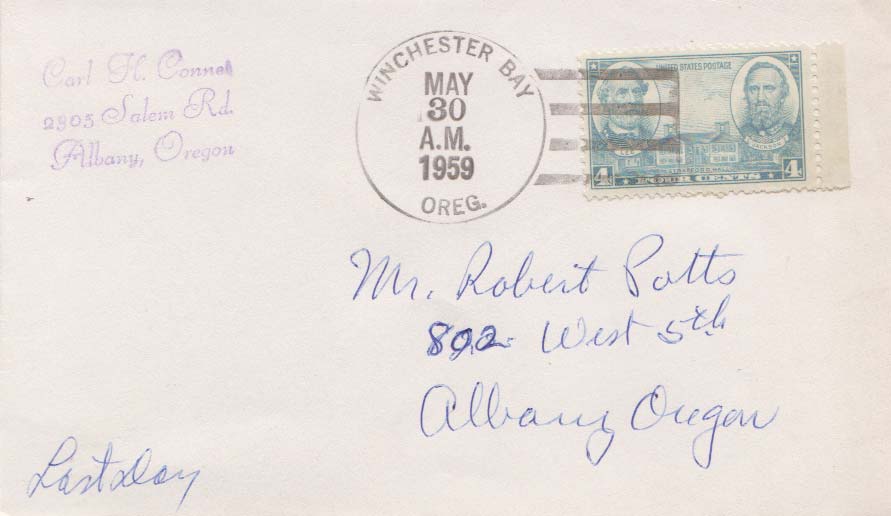 Carl H. Connel
2905 Salem Rd.
Albany, Oregon
WINCHESTER BAY
MAY
30
A.M.
1959
OREG.
UNITED STATES POSTAGE
LEE
JACKSON
STRATFORD HALL
4 FOUR CENTS 4
Mr. Robert Potts
802 West 5th
Albany Oregon
Last Day